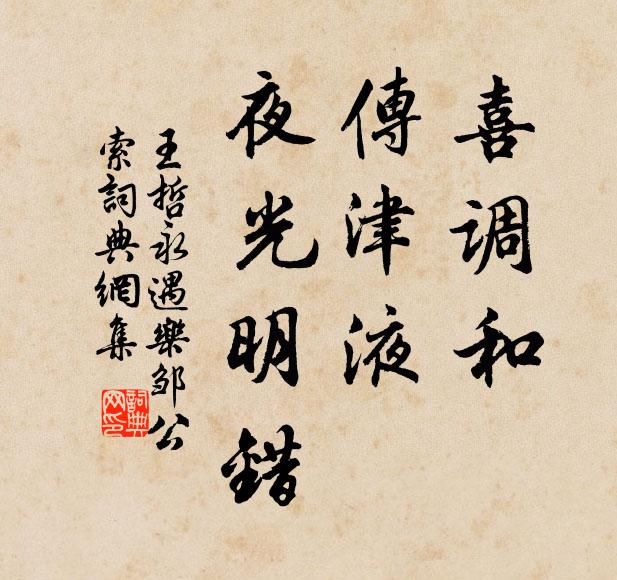 喜调和
傳津液
夜光明錯
王哲永遇樂邹公
索詞典網集
詞典网印